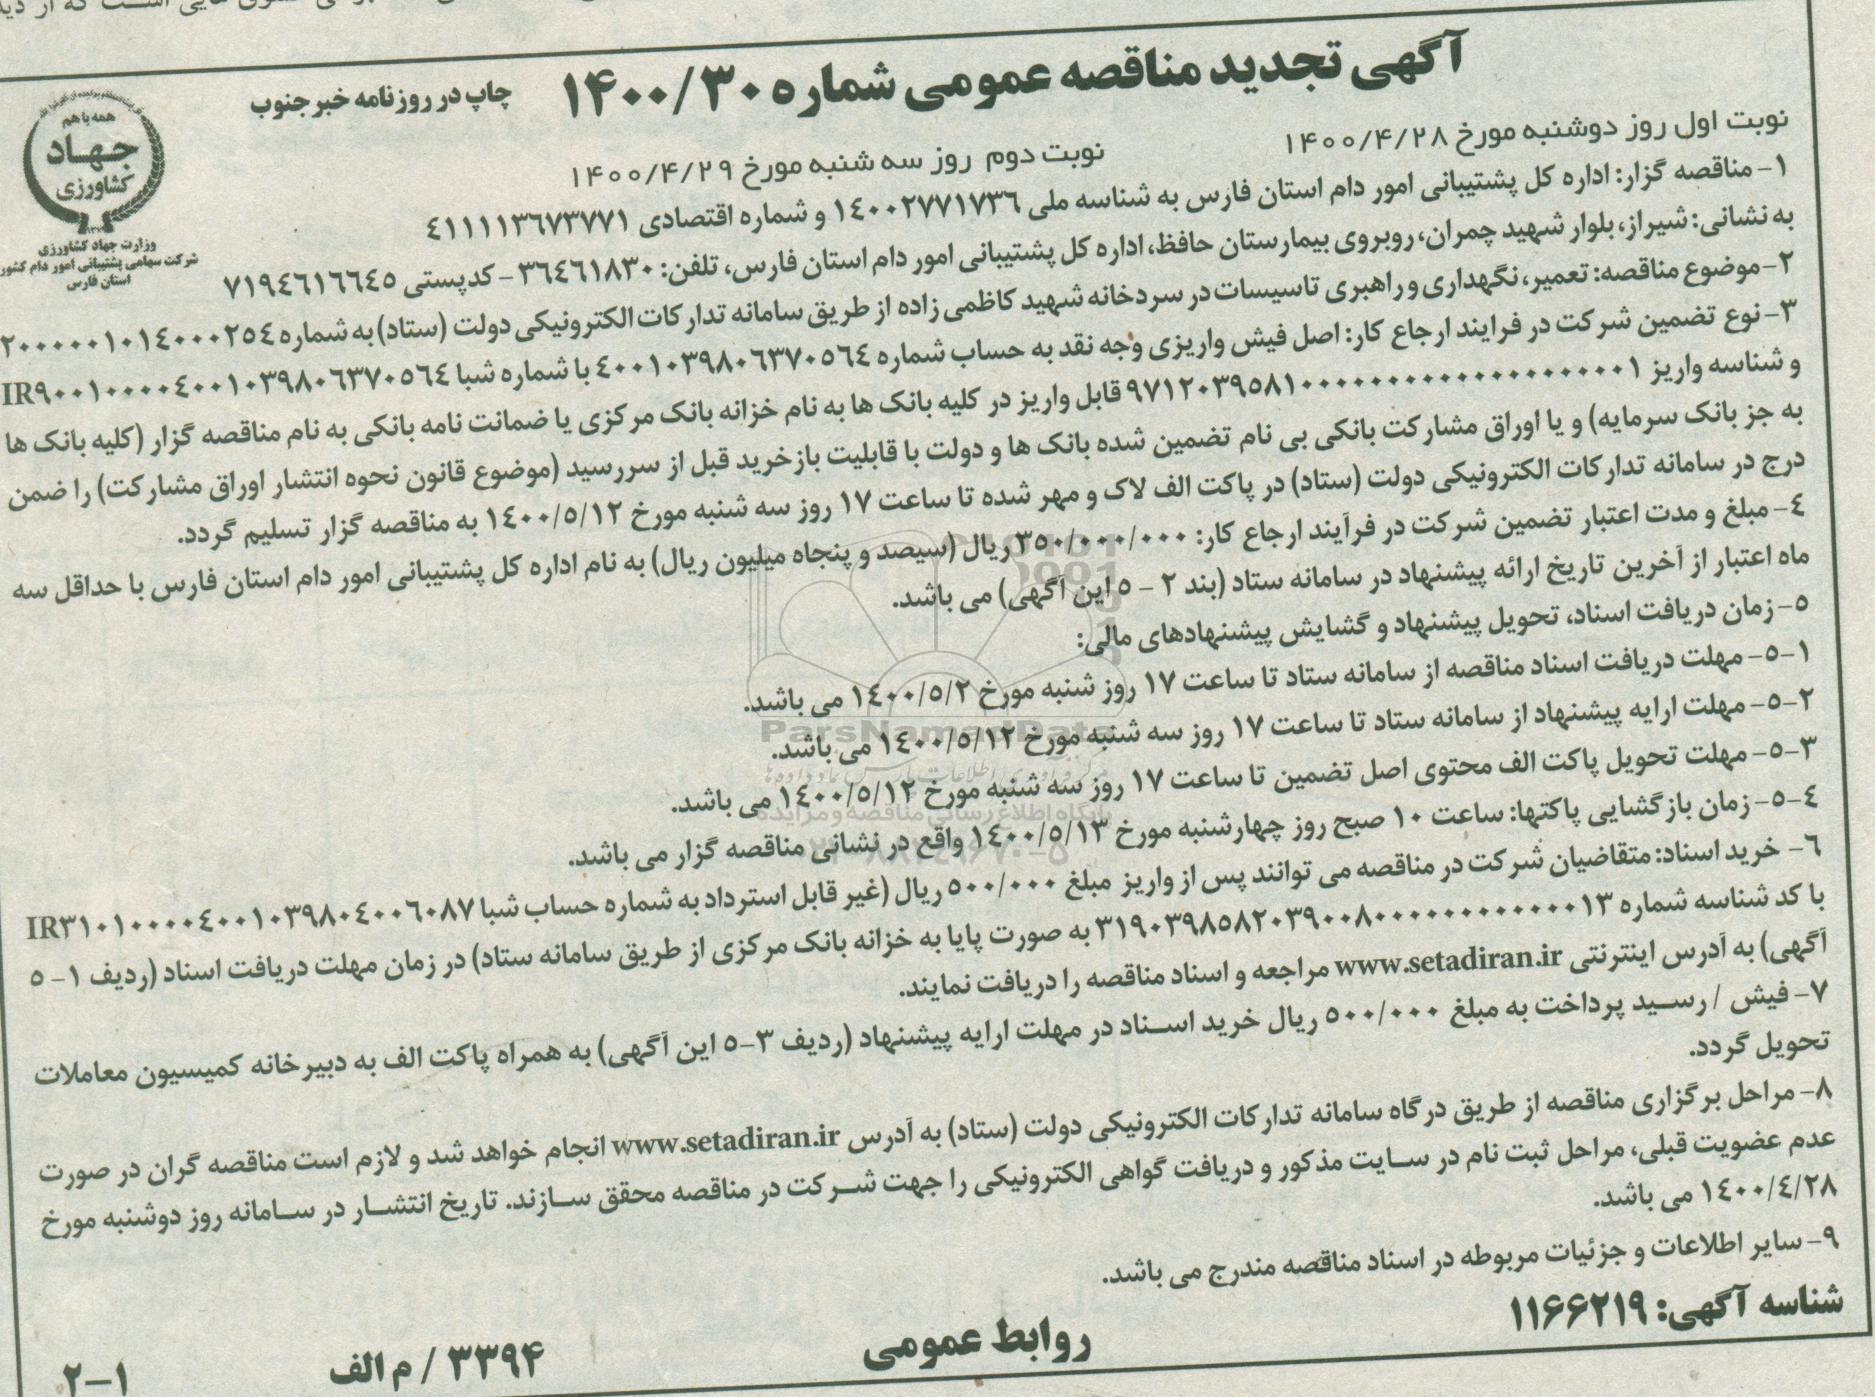 آگهی تجدید مناقصه عمومی شماره ۱۴۰۰/۳۰
چاپ در روزنامه خبر جنوب
نوبت اول روز دوشنبه مورخ ۱۴۰۰/۴/۲۸
نوبت دوم روز سه شنبه مورخ ۱۴۰۰/۴/۲۹
همه با هم
جهاد
کشاورزی
وزارت جهاد کشاورزی
شرکت سهامی پشتیبانی امور دام کشور
استان فارس
۱- مناقصه گزار: اداره کل پشتیبانی امور دام استان فارس به شناسه ملی ۱۴۰۰۲۷۷۱۷۳۶ و شماره اقتصادی ۴۱۱۱۱۳۶۷۳۷۷۱
به نشانی: شیراز، بلوار شهید چمران، روبروی بیمارستان حافظ، اداره کل پشتیبانی امور دام استان فارس، تلفن: ۳۶۴۶۱۸۳۰ - کدپستی ۷۱۹۴۶۱۶۶۴۵
۲-موضوع مناقصه: تعمیر، نگهداری و راهبری تاسیسات در سردخانه شهید کاظمی زاده از طریق سامانه تدارکات الکترونیکی دولت (ستاد) به شماره ۲۰۰۰۰۰۱۰۱۴۰۰۰۲۵۴
۳-نوع تضمین شرکت در فرایند ارجاع کار: اصل فیش واریزی وجه نقد به حساب شماره ۴۰۰۱۰۳۹۸۰۶۳۷۰۵۶۴ با شماره شبا IR۹۰۰۱۰۰۰۰۴۰۰۱۰۳۹۸۰۶۳۷۰۵۶۴
و شناسه واریز قابل واریز در کلیه بانک ها به نام خزانه بانک مرکزی یا ضمانت نامه بانکی به نام مناقصه گزار (کلیه بانک ها
به جز بانک سرمایه) و یا اوراق مشارکت بانکی بی نام تضمین شده بانک ها و دولت با قابلیت بازخرید قبل از سررسید (موضوع قانون نحوه انتشار اوراق مشارکت) را ضمن
درج در سامانه تدارکات الکترونیکی دولت (ستاد) در پاکت الف لاک و مهر شده تا ساعت ۱۷ روز سه شنبه مورخ ۱۴۰۰/۵/۱۲ به مناقصه گزار تسلیم گردد.
۴- مبلغ و مدت اعتبار تضمین شرکت در فرآیند ارجاع کار: ۳۵۰/۰۰۰/۰۰۰ ریال (سیصد و پنجاه میلیون ریال) به نام اداره کل پشتیبانی امور دام استان فارس با حداقل سه
ماه اعتبار از آخرین تاریخ ارائه پیشنهاد در سامانه ستاد (بند ۲ - ۵ این آگهی) می باشد.
۵-زمان دریافت اسناد، تحویل پیشنهاد و گشایش پیشنهادهای مالی:
۵-۱- مهلت دریافت اسناد مناقصه از سامانه ستاد تا ساعت ۱۷ روز شنبه مورخ ۱۴۰۰/۵/۲ می باشد.
۵-۲- مهلت ارایه پیشنهاد از سامانه ستاد تا ساعت ۱۷ روز سه شنبه مورخ ۱۴۰۰/۵/۱۲ می باشد.
۵-۳- مهلت تحویل پاکت الف محتوی اصل تضمین تا ساعت ۱۷ روز سه شنبه مورخ ۱۴۰۰/۵/۱۲ می باشد.
۵-۴- زمان بازگشایی پاکتها: ساعت ۱۰ صبح روز چهارشنبه مورخ ۱۴۰۰/۵/۱۳ واقع در نشانی مناقصه گزار می باشد.
۶- خرید اسناد: متقاضیان شرکت در مناقصه می توانند پس از واریز مبلغ ۵۰۰/۰۰۰ ریال (غیر قابل استرداد به شماره حساب شبا IR۳۱۰۱۰۰۰۰۴۰۰۱۰۳۹۸۰۴۰۰۶۰۸۷
با کد شناسه شماره به صورت پایا به خزانه بانک مرکزی از طریق سامانه ستاد) در زمان مهلت دریافت اسناد (ردیف ۱- ۵
آگهی) به آدرس اینترنتی www.setadiran.ir مراجعه و اسناد مناقصه را دریافت نمایند.
۷- فیش / رسید پرداخت به مبلغ ۵۰۰/۰۰۰ ریال خرید اسناد در مهلت ارایه پیشنهاد (ردیف ۳-۵ این آگهی) به همراه پاکت الف به دبیرخانه کمیسیون معاملات
تحویل گردد.
۸- مراحل برگزاری مناقصه از طریق درگاه سامانه تدارکات الکترونیکی دولت (ستاد) به آدرس www.setadiran.ir انجام خواهد شد و لازم است مناقصه گران در صورت
عدم عضویت قبلی، مراحل ثبت نام در سایت مذکور و دریافت گواهی الکترونیکی را جهت شرکت در مناقصه محقق سازند. تاریخ انتشار در سامانه روز دوشنبه مورخ
۱۴۰۰/۴/۲۸ می باشد.
۹- سایر اطلاعات و جزئیات مربوطه در اسناد مناقصه مندرج می باشد.
شناسه آگهی: ۱۱۶۶۲۱۹
روابط عمومی
۳۳۹۴ / م الف
۲-۱
ParsNamadData
پایگاه اطلاع رسانی مناقصه و مزایده